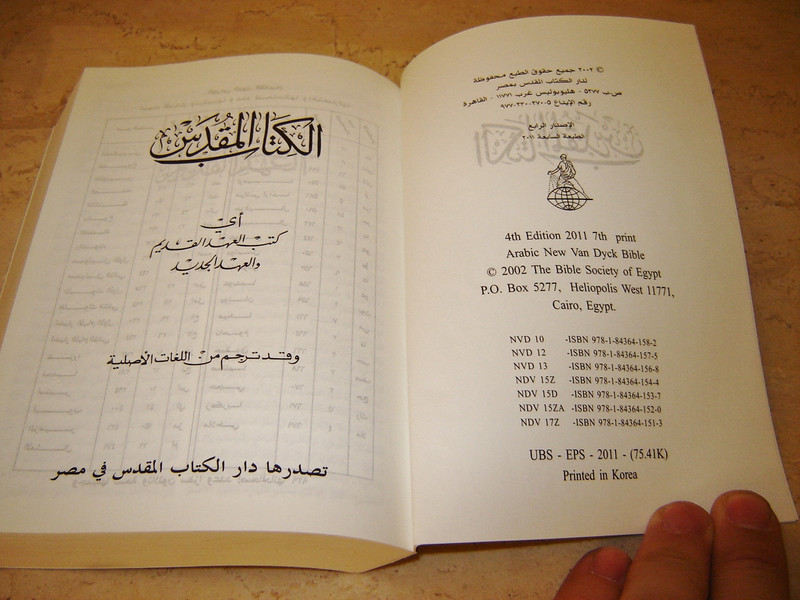 الكتاب المقدس
أي
كتب العهد القديم
والعهد الجديد
وقد ترجم من اللغات الأصلية
تصدرها دار الكتاب المقدس في مصر
© ٢٠٠٢ جميع حقوق الطبع محفوظة
لدار الكتاب المقدس بمصر
ص ب ٥٢٧٧ - هليوبوليس غرب ١١٧٧١ - القاهرة
رقم الإيداع ٥-٢٧٠-٢٣٠-٩٧٧
الإصدار الرابع
الطبعة السابعة ٢٠١١
4th Edition 2011 7th print
Arabic New Van Dyck Bible
© 2002 The Bible Society of Egypt
P.O. Box 5277, Heliopolis West 11771,
Cairo, Egypt.
NVD 10 -ISBN 978-1-84364-158-2
NVD 12 -ISBN 978-1-84364-157-5
NVD 13 -ISBN 978-1-84364-156-8
NDV 15Z -ISBN 978-1-84364-154-4
NDV 15D -ISBN 978-1-84364-153-7
NDV 15ZA -ISBN 978-1-84364-152-0
NDV 17Z -ISBN 978-1-84364-151-3
UBS - EPS - 2011 - (75.41K)
Printed in Korea